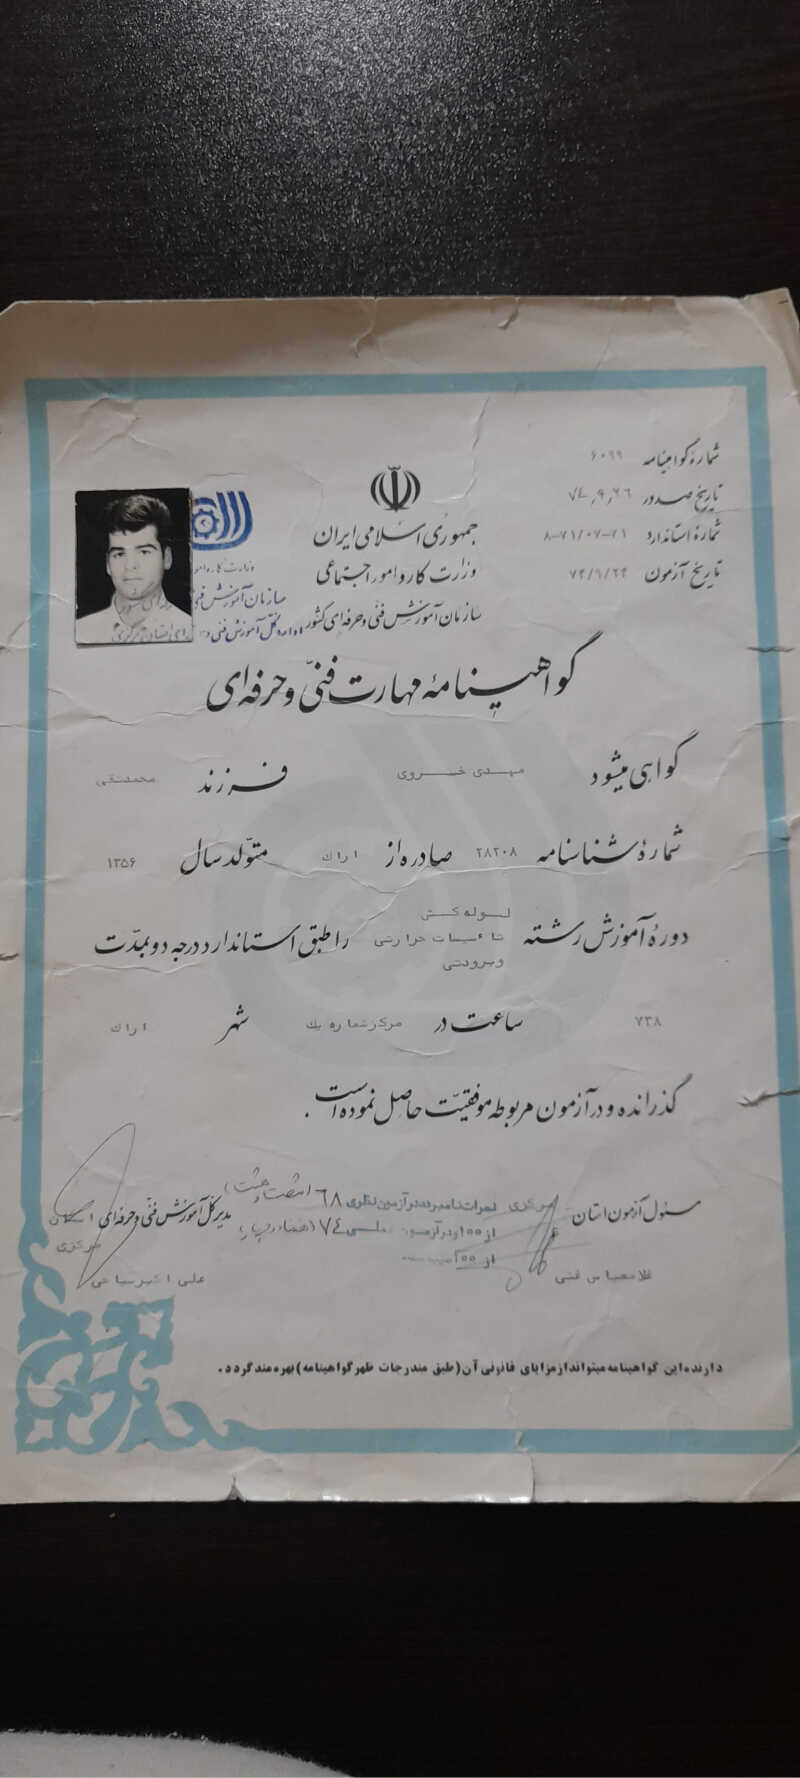 شمارهٔ گواهینامه ۶۰۹۹
تاریخ صدور ۷۴٫۹٫۲۶
شمارهٔ استاندارد ۸-۷۱/۰۷-۲۱
تاریخ آزمون ۷۴/۶/۲۴
جمهوری اسلامی ایران
وزارت کار و امور اجتماعی
سازمان آموزش فنی و حرفه‌ای کشور
وزارت کار و امور
سازمان آموزش فنی
اداره کل آموزش فنی و
گواهینامهٔ مهارت فنی و حرفه‌ای
گواهی میشود مهدی خسروی فرزند محمدتقی
شمارهٔ شناسنامه ۲۸۲۰۸ صادره از اراک متولد سال ۱۳۵۶
دورهٔ آموزش رشته لوله کشی تاسیسات حرارتی وبرودتی را طبق استاندارد درجه دو بمدت
۷۳۸ ساعت در مرکز شماره یک شهر اراک
گذرانده و در آزمون مربوطه موفقیت حاصل نموده است.
مسئول آزمون استان مرکزی
غلامعباس فنی
نمرات نامبرده در آزمون نظری ۶۸ (شصت و هشت)
از ۱۰۰ و در آزمون عملی ۷۴ (هفتاد و چهار)
از ۱۰۰
مدیر کل آموزش فنی و حرفه‌ای استان
مرکزی
علی اکبر
دارنده این گواهینامه میتواند از مزایای قانونی آن (طبق مندرجات ظهر گواهینامه) بهره‌مند گردد.